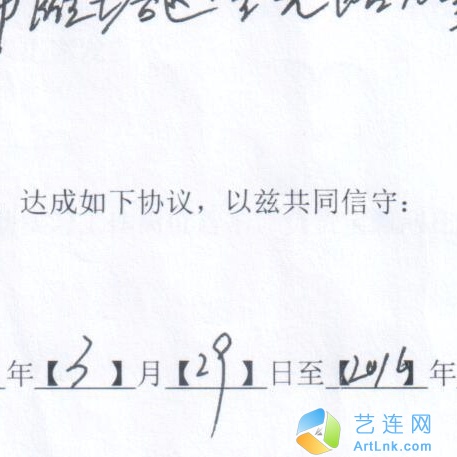 达成如下协议，以兹共同信守：
年【3】月【29】日至【2016】年
艺连网
ArtLnk.com